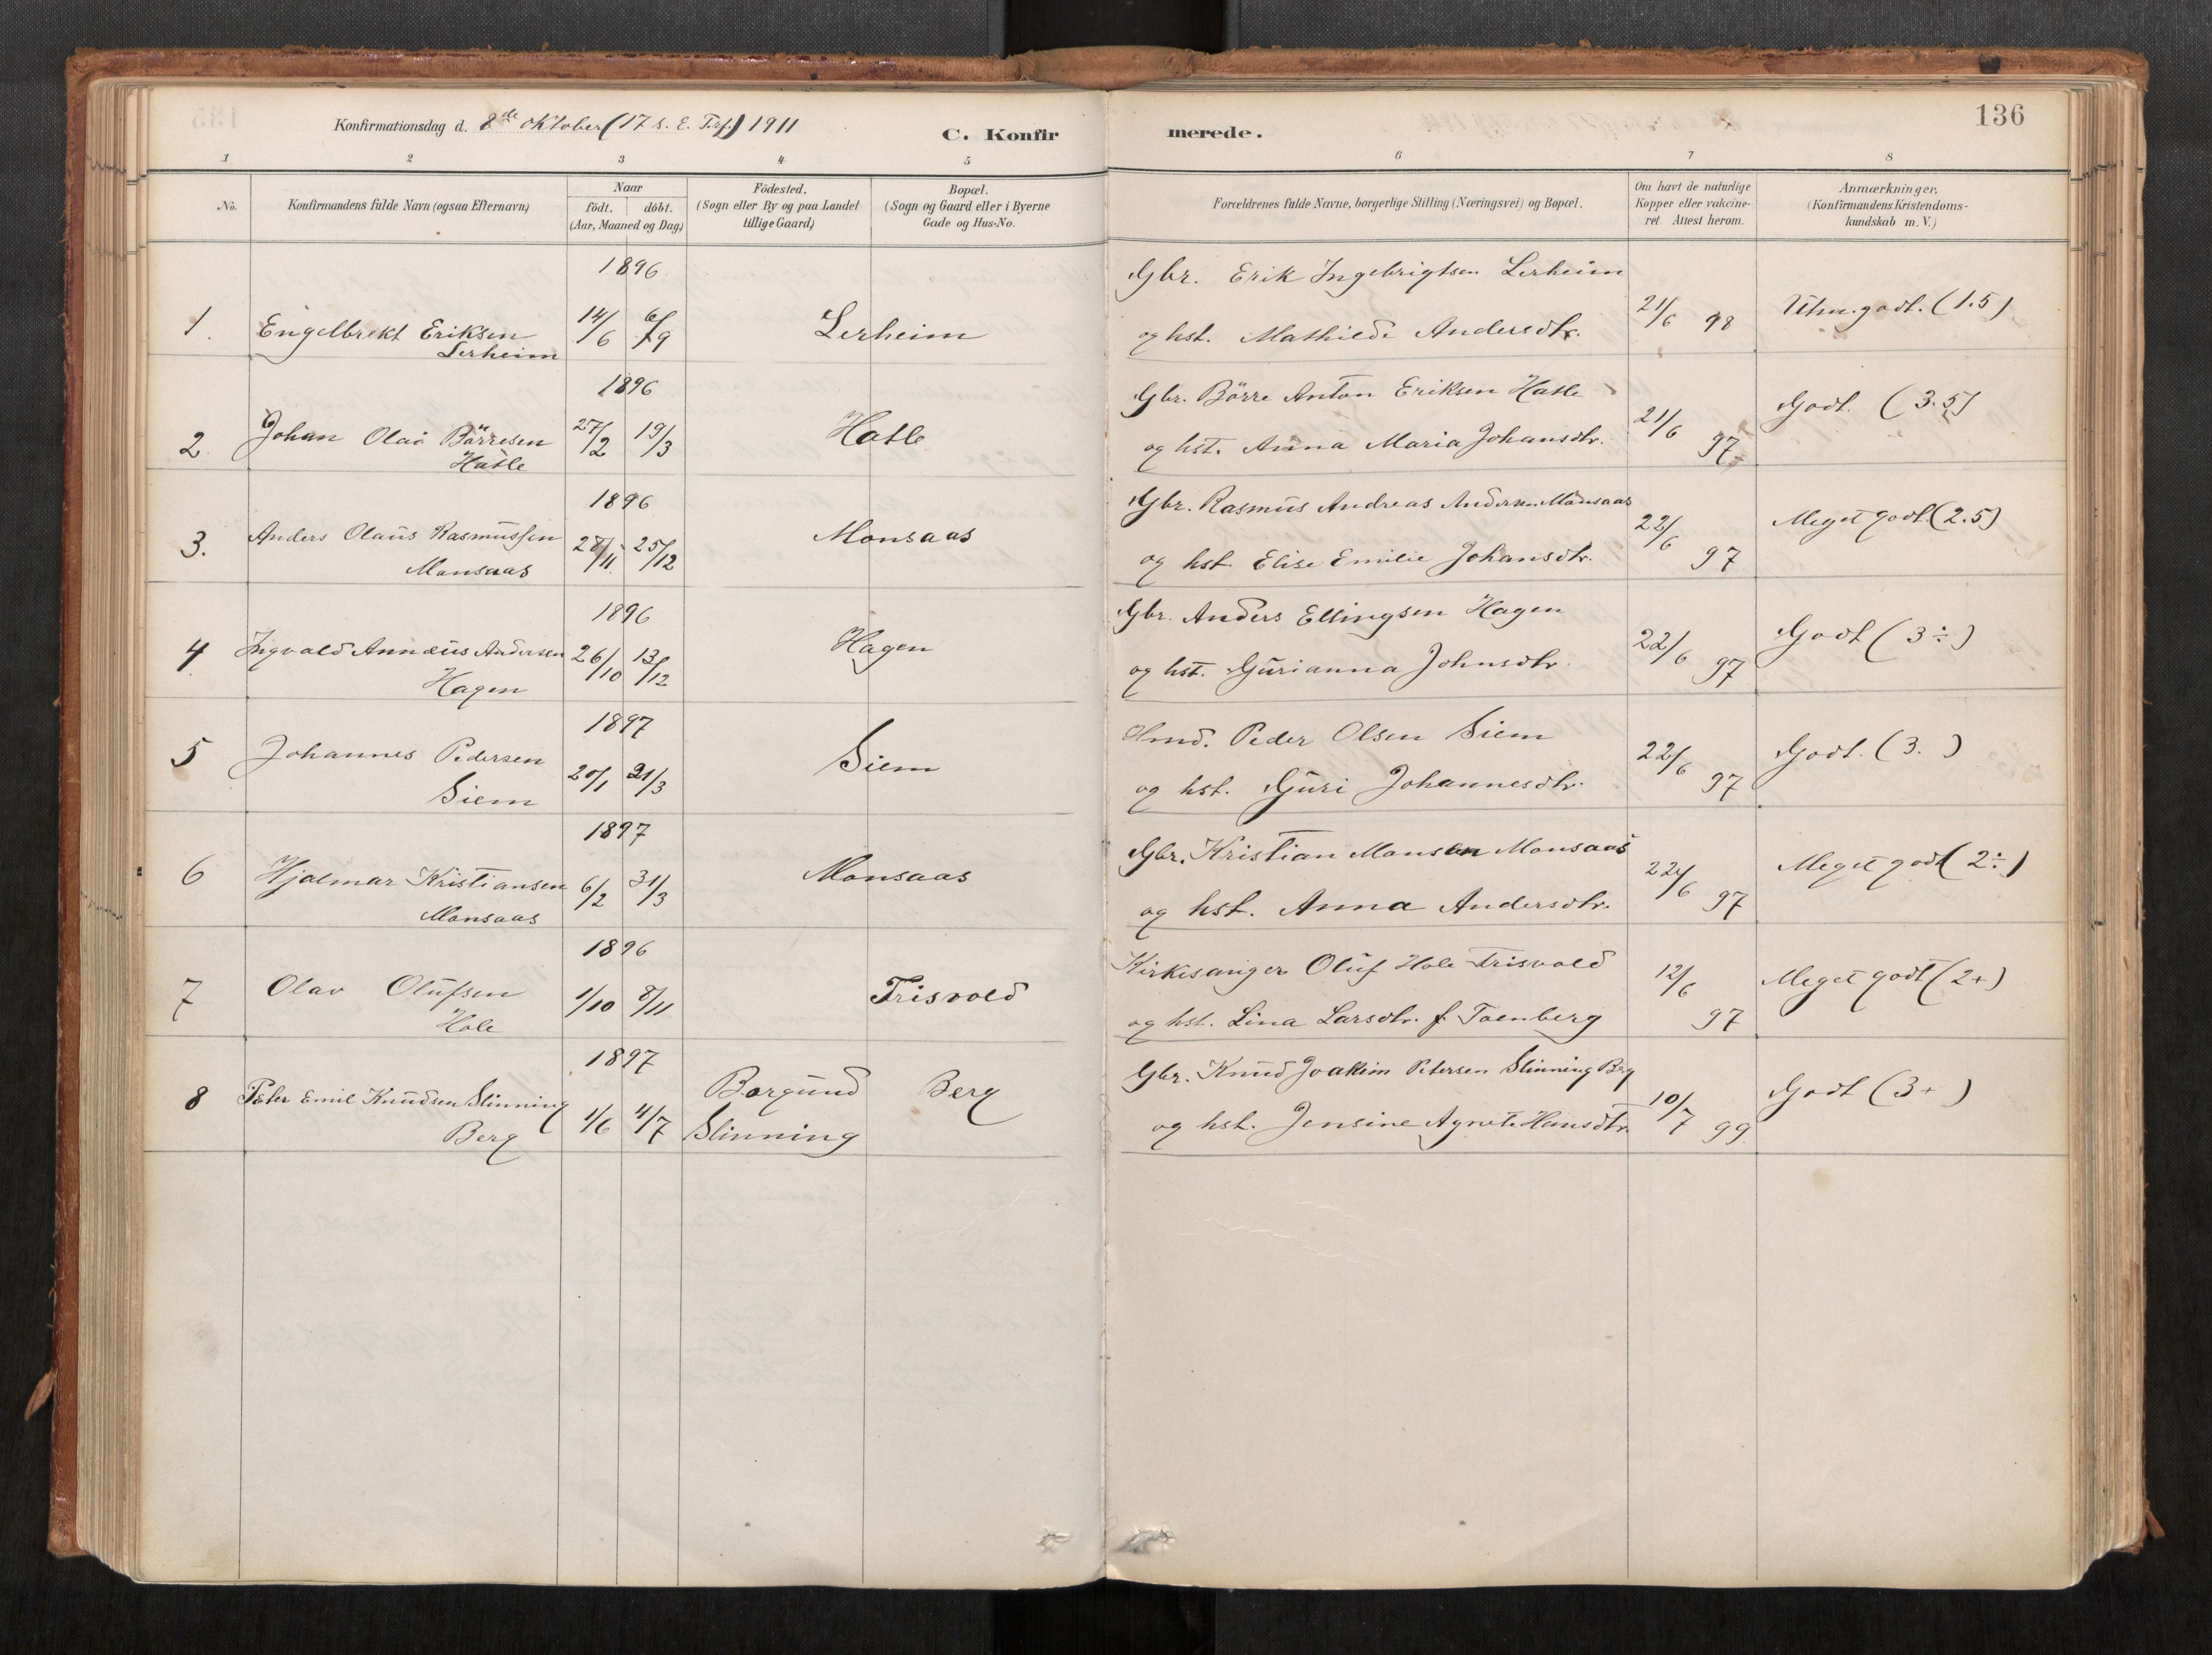 136
Konfirmationsdag d. 8de oktober (17 s. E. Tref.) 1911
C. Konfirmerede.
1 2 3 4 5 6 7 8
No.
Konfirmandens fulde Navn (ogsaa Efternavn)
Naar
födt. döbt.
(Aar, Maaned og Dag)
Födested.
(Sogn eller By og paa Landet
tillige Gaard)
Bopæl.
(Sogn og Gaard eller i Byerne
Gade og Hus-No.
Forældrenes fulde Navne, borgerlige Stilling (Næringsvei) og Bopæl.
Om havt de naturlige
Kopper eller vakcine-
ret. Attest herom.
Anmærkninger,
(Konfirmandens Kristendoms-
kundskab m. V.)
1896
1. Engelbrekt Eriksen 14/6 6/9 Lerheim
Lerheim
Gbr. Erik Ingebrigtsen Lerheim
og hst. Mathilde Andersdtr. 21/6 98 Utm. godt. (1.5)
1896
2 Johan Olai Börresen 27/2 19/3 Hatle
Hatle
Gbr. Börre Anton Eriksen Hatle
og hst. Anna Maria Johansdtr. 21/6 97 Godt. (3.5)
1896
3. Anders Olaus Rasmussen 28/11 25/12 Monsaas
Monsaas
Gbr. Rasmus Andreas Andersen Monsaas
og hst. Elise Emilie Johansdtr. 22/6 97 Meget godt (2.5)
1896
4 Ingvald Annæus Andersen 26/10 13/12 Hagen
Hagen
Gbr. Anders Ellingsen Hagen
og hst. Gurianna Johnsdtr 22/6 97 Godt (3÷)
1897
5 Johannes Pedersen 20/1 21/3 Siem
Siem
Hmd. Peder Olsen Siem
og hst. Guri Johannesdtr. 22/6 97 Godt. (3. )
1897
6 Hjalmar Kristiansen 6/2 31/3 Monsaas
Monsaas
Gbr. Kristian Monsen Monsaas
og hst. Anna Andersdtr. 22/6 97 Meget godt (2÷)
1896
7 Olav Olufsen 1/10 8/11 Trisvold
Hole
Kirkesanger Oluf Hole Trisvold
og hst. Lina Larsdtr. f. Toenberg 12/6 97 Meget godt (2+)
1897
8 Peter Emil Knudsen Slinning 1/6 4/7 Borgund Berg
Berg Slinning
Gbr. Knud Joakim Petersen Slinning Berg
og hst. Jensine Agnete Hansdtr. 10/7 99 Godt (3+)